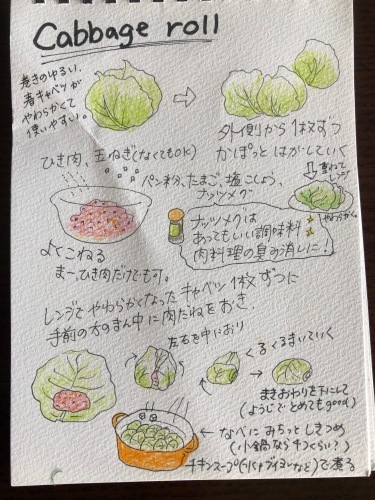 Cabbage roll
巻きのゆるい、
春キャベツが
やわらかくて
使いやすい。
外側から1枚ずつ
かぽっとはがしていく
ひき肉、玉ねぎ(なくてもOK)
パン粉、たまご、塩こしょう、
ナッツメグ
重ねて
レンジ
やわらかく。
ナッツメグは
あってもいい調味料
肉料理の臭み消しに!
よくこねる
まー、ひき肉だけでも可。
レンジでやわらかくなったキャベツ1枚ずつに
手前の方のまん中に肉だねをおき、
左右を中におり
くるくるまいていく
まきおわりを下にして
(ようじでとめてもgood)
なべにみちっとしきつめ
(小鍋なら4つくらい?)
チキンスープ(ブイヨンなど)で煮る